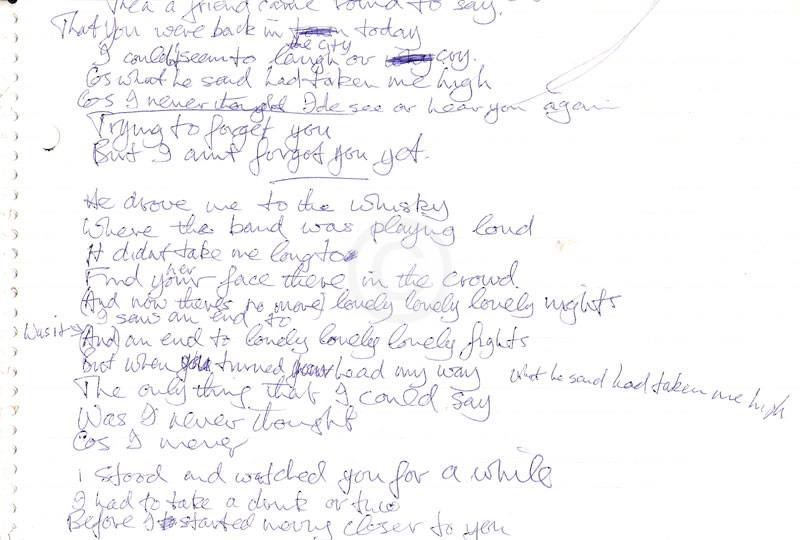 Then a friend came round to say.
That you were back in town today
the city
I could seem to laugh or cry.
Cos what he said had taken me high
Cos I never thought I'de see or hear you again
Trying to forget you
But I aint forgot you yet.
He drove me to the whisky
Where the band was playing loud
It didnt take me long to
her
Find your face there in the crowd
(And now theres no more) lonely lonely lonely nights
I saw an end to
Was it
(And) an end to lonely lonely lonely fights
But when you turned your head my way what he said had taken me high
The only thing that I could say
Was I never thought
Cos I never
I stood and watched you for a while
I had to take a drink or two
Before I started moving closer to you